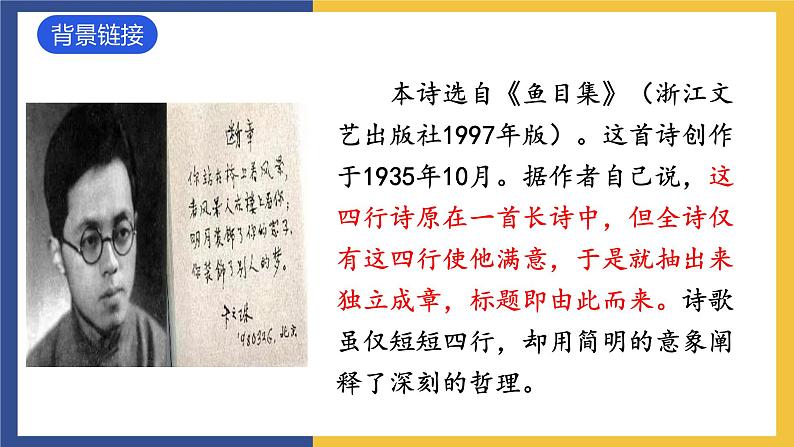 背景链接
断章
你站在桥上看风景，
看风景人在楼上看你；
明月装饰了你的窗子，
你装饰了别人的梦。
卞之琳
1980326，北京
本诗选自《鱼目集》（浙江文
艺出版社1997年版）。这首诗创作
于1935年10月。据作者自己说，这
四行诗原在一首长诗中，但全诗仅
有这四行使他满意，于是就抽出来
独立成章，标题即由此而来。诗歌
虽仅短短四行，却用简明的意象阐
释了深刻的哲理。